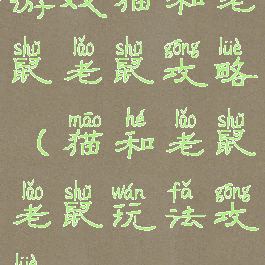 游戏猫和老
shǔ lǎo shǔ gōng lüè
鼠老鼠攻略
māo hé lǎo shǔ
(猫和老鼠
lǎo shǔ wán fǎ gōng
老鼠玩法攻
lüè